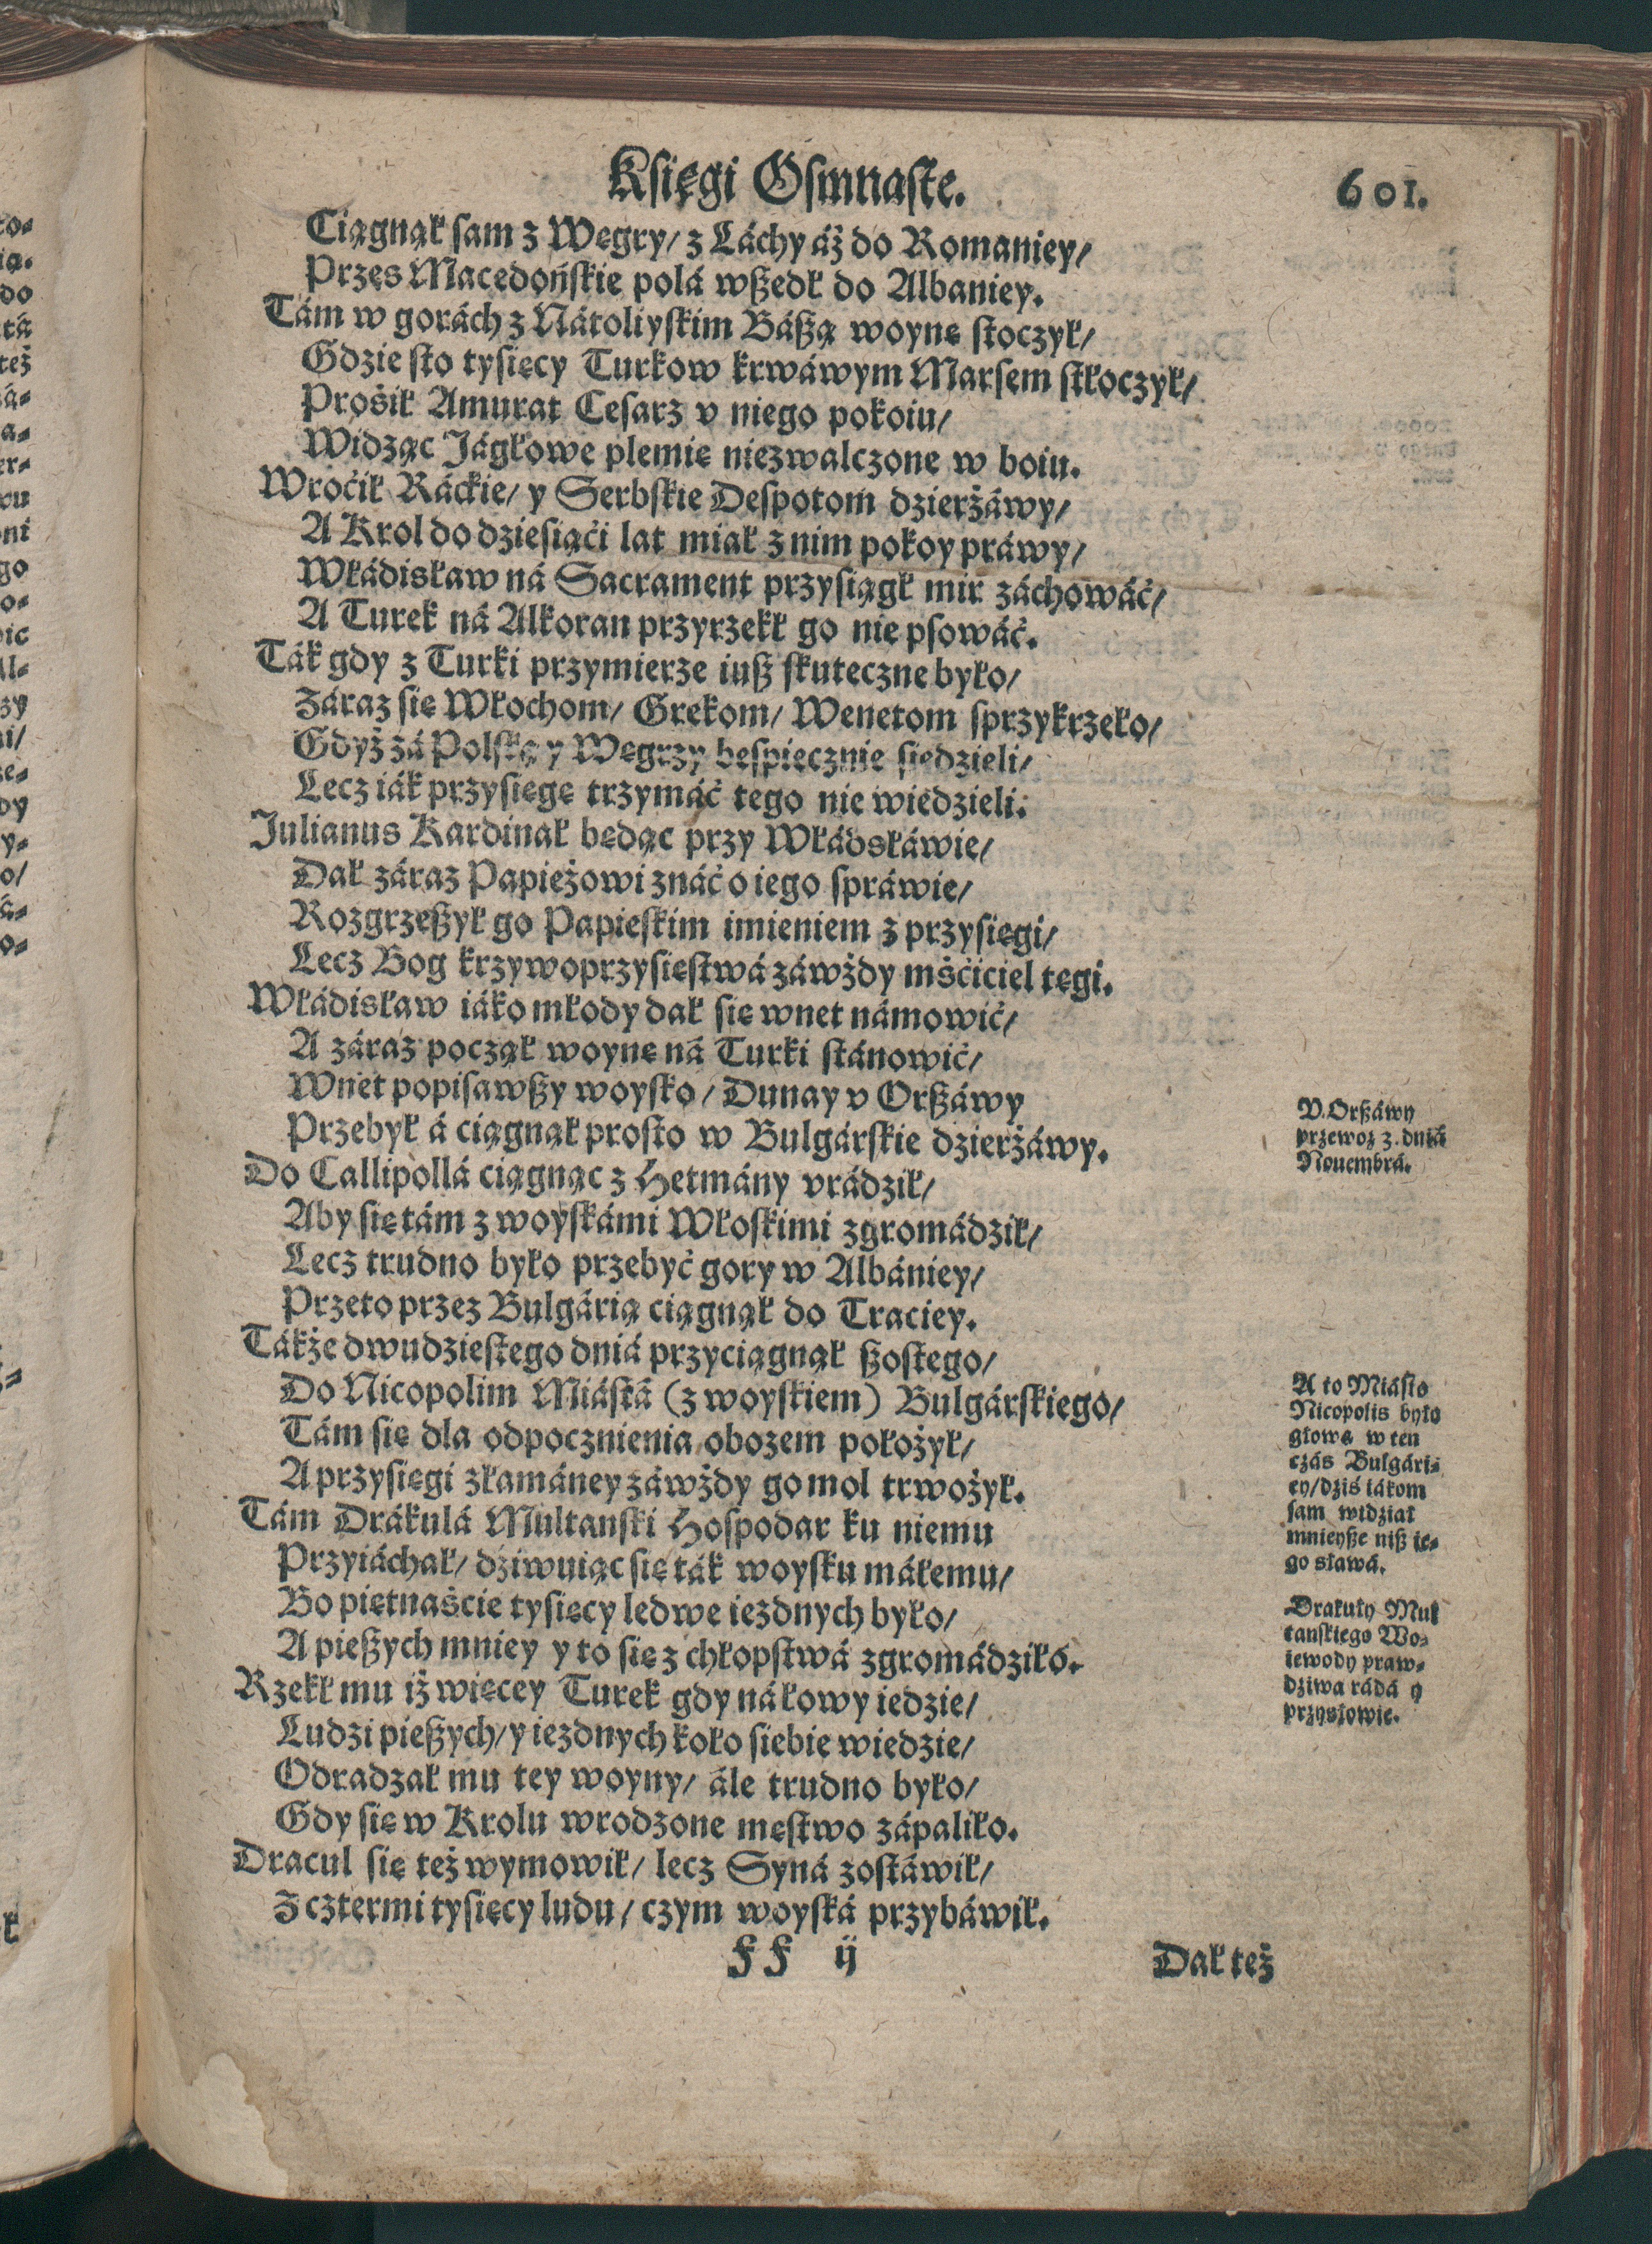 Księgi Osmnaste.
601.
Ciągnął sam z Węgry/ z Láchy áż do Romaniey/
Przes Macedońskie polá wszedł do Albaniey.
Tám w gorách z Nátoliyskim Bászą woynę stoczył/
Gdzie sto tysięcy Turkow krwáwym Marsem stłoczył/
Prośił Amurat Cesarz v niego pokoiu/
Widząc Jágłowe plemię niezwalczone w boiu.
Wroćił Ráckie/ y Serbskie Despotom dzierżáwy/
A Krol do dziesiąći lat miał z nim pokoy práwy/
Włádisław ná Sacrament przysiągł mir záchowáć/
A Turek ná Alkoran przyrzekł go nie psowáć.
Ták gdy z Turki przymierze iusz skuteczne było/
Záraz się Włochom/ Grekom/ Wenetom sprzykrzeło/
Gdyż zá Polską y Węgrzy bespiecznie siedzieli/
Lecz iák przysięgę trzymáć tego nie wiedzieli.
Julianus Kardinał będąc przy Włádsłáwie/
Dał záraz Papieżowi znáć o iego spráwie/
Rozgrzeszył go Papieskim imieniem z przysięgi/
Lecz Bog krzywoprzysięstwá záwżdy mśćiciel tęgi.
Włádisław iáko młody dał się wnet námowić/
A záraz począł woynę ná Turki stánowić/
Wnet popisawszy woysko/ Dunay v Orszáwy
Przebył á ciągnął prosto w Bulgárskie dzierżáwy.
Do Callipollá ciągnąc z Hetmány vrádził/
Aby się tám z woyskámi Włoskimi zgromádził/
Lecz trudno było przebyć gory w Albániey/
Przeto przez Bulgárią ciągnął do Traciey.
Tákże dwudziestego dniá przyciągnął szostego/
Do Nicopolim Miástá (z woyskiem) Bulgárskiego/
Tám się dla odpocznienia obozem położył/
A przysięgi złamáney záwżdy go mol trwożył.
Tám Drákulá Multanski Hospodar ku niemu
Przyiáchał/ dźiwuiąc się ták woysku máłemu/
Bo piętnaście tysięcy ledwe iezdnych było/
A pieszych mniey y to się z chłopstwá zgromádziło.
Rzekł mu iż więcey Turek gdy ná łowy iedzie/
Ludzi pieszych/ y iezdnych koło siebie wiedzie/
Odradzał mu tey woyny/ ále trudno było/
Gdy się w Krolu wrodzone męstwo zápaliło.
Dracul się też wymowił/ lecz Syná zostáwił/
Z cztermi tysięcy ludu/ czym woyská przybáwił.
FF ij
Dał też
V Orszáwy
przewoz 3. dniá
Nouembrá.
A to Miásto
Nicopolis było
głową w ten
czás Bulgári-
ey/dziś iákom
sam widział
mnieysze nisz ie-
go sławá.
Drakuły Mul
tanskiego Wo-
iewody praw-
dziwa rádá y
przysłowie.